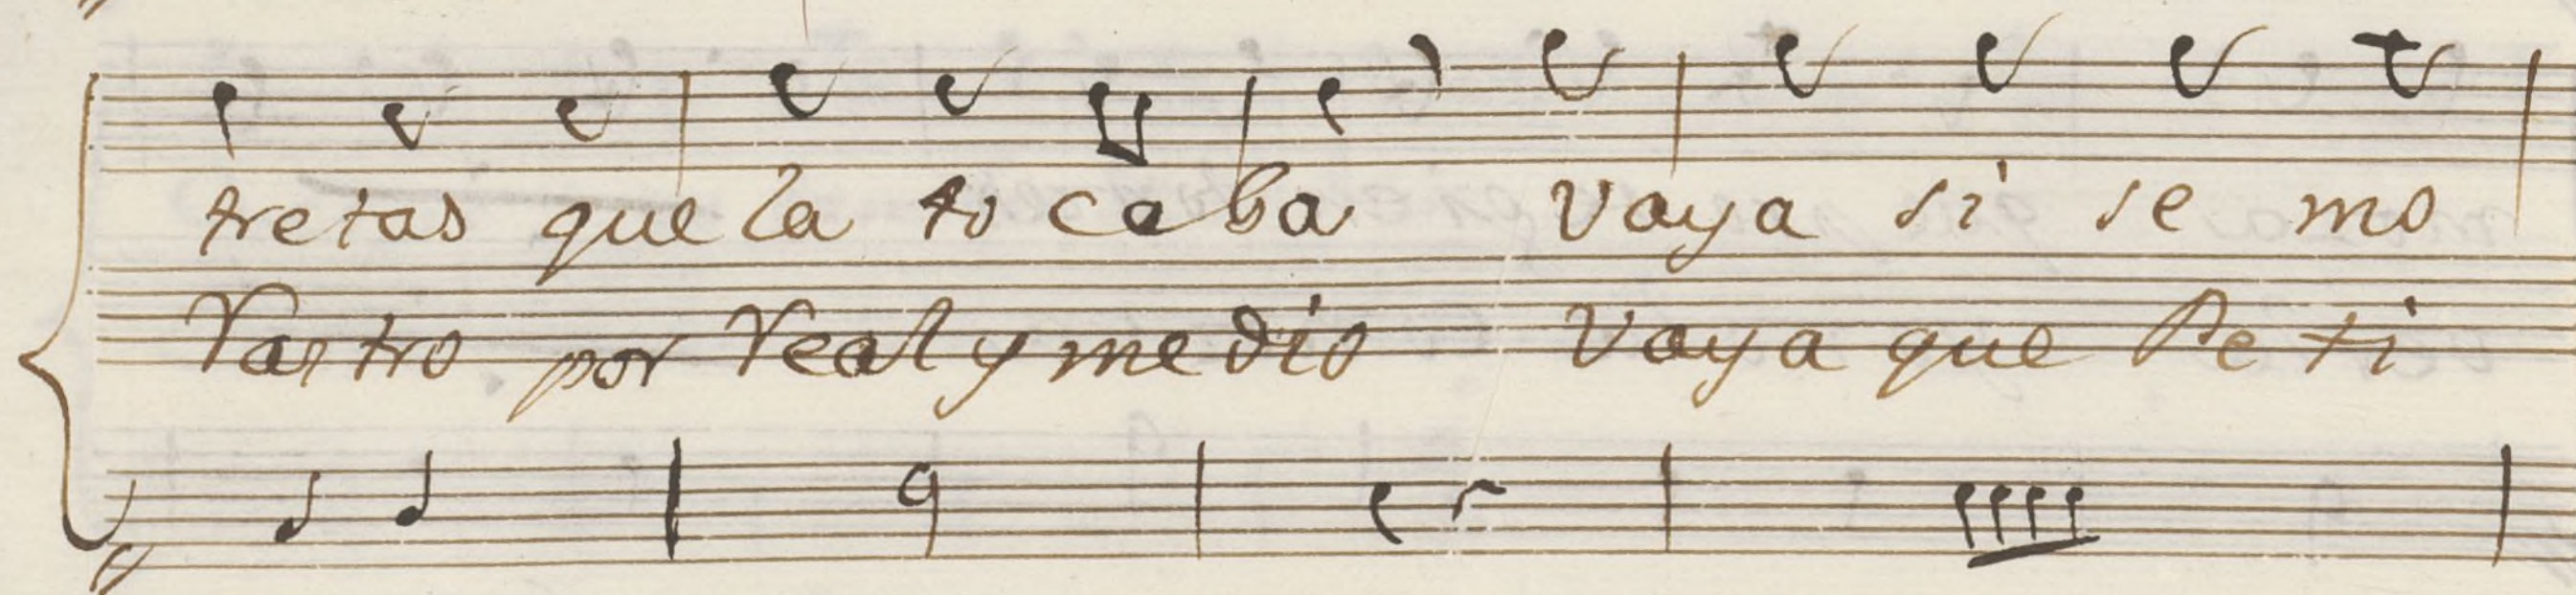 tretas que la to ca ba vaya si se mo
Rastro por Real y medio vaya que Pe ti